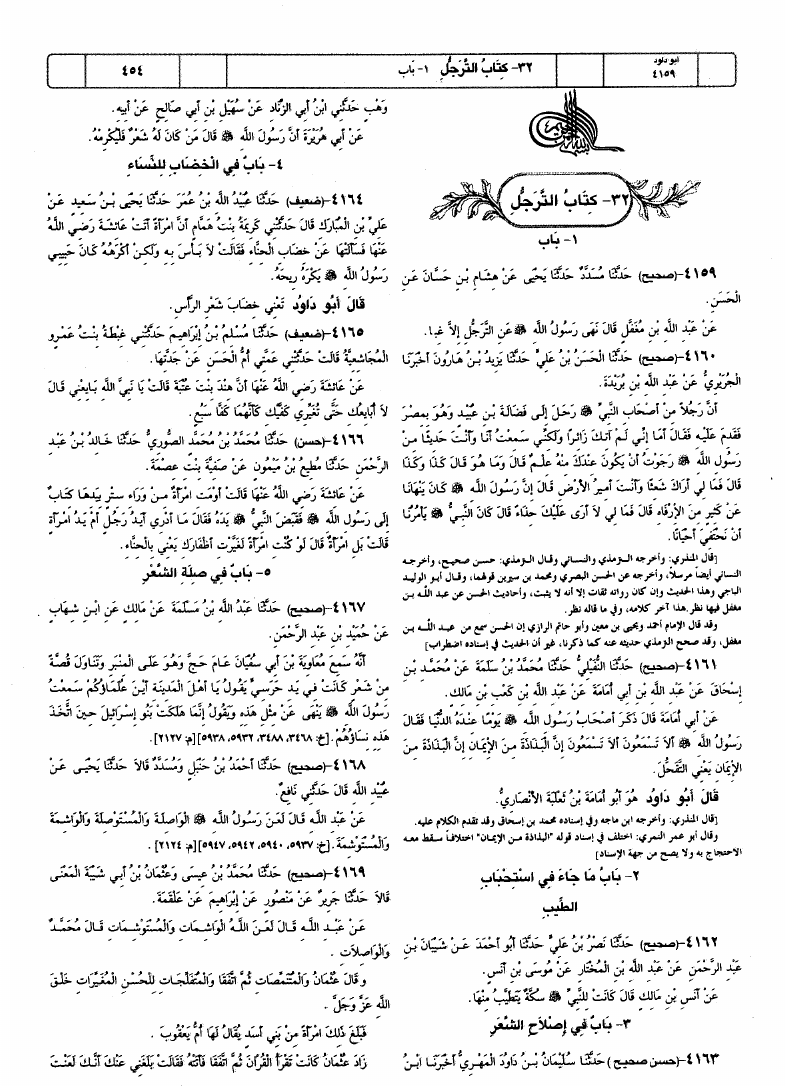 أبو داود
٤١٥٩
٣٢- كِتَابُ التَّرَجُّلِ ١- بَاب
٤٥٤
٣٢- كِتَابُ التَّرَجُّلِ
١- بَاب
٤١٥٩-(صحيح) حَدَّثَنَا مُسَدَّدٌ حَدَّثَنَا يَحْيَى عَنْ هِشَامِ بْنِ حَسَّانَ عَنِ
الْحَسَنِ.
عَنْ عَبْدِ اللَّهِ بْنِ مُغَفَّلٍ قَالَ نَهَى رَسُولُ اللَّهِ ﷺ عَنِ التَّرَجُّلِ إِلاَّ غِبًا.
٤١٦٠-(صحيح) حَدَّثَنَا الْحَسَنُ بْنُ عَلِيٍّ حَدَّثَنَا يَزِيدُ بْنُ هَارُونَ أَخْبَرَنَا
الْجُرَيْرِيُّ عَنْ عَبْدِ اللَّهِ بْنِ بُرَيْدَةَ.
أَنَّ رَجُلاً مِنْ أَصْحَابِ النَّبِيِّ ﷺ رَحَلَ إِلَى فَضَالَةَ بْنِ عُبَيْدٍ وَهُوَ بِمِصْرَ
فَقَدِمَ عَلَيْهِ فَقَالَ أَمَا إِنِّي لَمْ آتِكَ زَائِرًا وَلَكِنِّي سَمِعْتُ أَنَا وَأَنْتَ حَدِيثًا مِنْ
رَسُولِ اللَّهِ ﷺ رَجَوْتُ أَنْ يَكُونَ عِنْدَكَ مِنْهُ عِلْمٌ قَالَ وَمَا هُوَ قَالَ كَذَا وَكَذَا
قَالَ فَمَا لِي أَرَاكَ شَعِثًا وَأَنْتَ أَمِيرُ الأَرْضِ قَالَ إِنَّ رَسُولَ اللَّهِ ﷺ كَانَ يَنْهَانَا
عَنْ كَثِيرٍ مِنَ الإِرْفَاهِ قَالَ فَمَا لِي لاَ أَرَى عَلَيْكَ حِذَاءً قَالَ كَانَ النَّبِيُّ ﷺ يَأْمُرُنَا
أَنْ نَحْتَفِيَ أَحْيَانًا.
[قال المنذري: وأخرجه الترمذي والنسائي وقال الترمذي: حسن صحيح، وأخرجه
النسائي أيضاً مرسلاً، وأخرجه عن الحسن البصري ومحمد بن سيرين قولهما، وقال أبو الوليد
الباجي وهذا الحديث وإن كان رواته ثقات إلا أنه لا يثبت، وأحاديث الحسن عن عبد الله بن
مغفل فيها نظر. هذا آخر كلامه، وفي ما قاله نظر.
وقد قال الإمام أحمد ويحيى بن معين وأبو حاتم الرازي إن الحسن سمع من عبد الله بن
مغفل، وقد صحح الترمذي حديثه عنه كما ذكرنا، غير أن الحديث في إسناده اضطراب]
٤١٦١-(صحيح) حَدَّثَنَا النُّفَيْلِيُّ حَدَّثَنَا مُحَمَّدُ بْنُ سَلَمَةَ عَنْ مُحَمَّدِ بْنِ
إِسْحَاقَ عَنْ عَبْدِ اللَّهِ بْنِ أَبِي أُمَامَةَ عَنْ عَبْدِ اللَّهِ بْنِ كَعْبِ بْنِ مَالِكٍ.
عَنْ أَبِي أُمَامَةَ قَالَ ذَكَرَ أَصْحَابُ رَسُولِ اللَّهِ ﷺ يَوْمًا عِنْدَهُ الدُّنْيَا فَقَالَ
رَسُولُ اللَّهِ ﷺ أَلاَ تَسْمَعُونَ أَلاَ تَسْمَعُونَ إِنَّ الْبَذَاذَةَ مِنَ الإِيمَانِ إِنَّ الْبَذَاذَةَ مِنَ
الإِيمَانِ يَعْنِي التَّقَحُّلَ.
قَالَ أَبُو دَاوُد هُوَ أَبُو أُمَامَةَ بْنُ ثَعْلَبَةَ الأَنْصَارِيُّ.
[قال المنذري: وأخرجه ابن ماجه وفي إسناده محمد بن إسحاق وقد تقدم الكلام عليه.
وقال أبو عمر النمري: اختلف في إسناد قوله "البذاذة من الإيمان" اختلافاً سقط معه
الاحتجاج به ولا يصح من جهة الإسناد]
٢- بَابُ مَا جَاءَ فِي اسْتِحْبَابِ
الطِّيبِ
٤١٦٢-(صحيح) حَدَّثَنَا نَصْرُ بْنُ عَلِيٍّ حَدَّثَنَا أَبُو أَحْمَدَ عَنْ شَيْبَانَ بْنِ
عَبْدِ الرَّحْمَنِ عَنْ عَبْدِ اللَّهِ بْنِ الْمُخْتَارِ عَنْ مُوسَى بْنِ أَنَسٍ.
عَنْ أَنَسِ بْنِ مَالِكٍ قَالَ كَانَتْ لِلنَّبِيِّ ﷺ سُكَّةٌ يَتَطَيَّبُ مِنْهَا.
٣- بَابٌ فِي إِصْلاَحِ الشَّعْرِ
٤١٦٣-(حسن صحيح) حَدَّثَنَا سُلَيْمَانُ بْنُ دَاوُدَ الْمَهْرِيُّ أَخْبَرَنَا ابْنُ
وَهْبٍ حَدَّثَنِي ابْنُ أَبِي الزِّنَادِ عَنْ سُهَيْلِ بْنِ أَبِي صَالِحٍ عَنْ أَبِيهِ.
عَنْ أَبِي هُرَيْرَةَ أَنَّ رَسُولَ اللَّهِ ﷺ قَالَ مَنْ كَانَ لَهُ شَعْرٌ فَلْيُكْرِمْهُ.
٤- بَابٌ فِي الْخِضَابِ لِلنِّسَاءِ
٤١٦٤-(ضعيف) حَدَّثَنَا عُبَيْدُ اللَّهِ بْنُ عُمَرَ حَدَّثَنَا يَحْيَى بْنُ سَعِيدٍ عَنْ
عَلِيِّ بْنِ الْمُبَارَكِ قَالَ حَدَّثَتْنِي كَرِيمَةُ بِنْتُ هَمَّامٍ أَنَّ امْرَأَةً أَتَتْ عَائِشَةَ رَضِيَ اللَّهُ
عَنْهَا فَسَأَلَتْهَا عَنْ خِضَابِ الْحِنَّاءِ فَقَالَتْ لاَ بَأْسَ بِهِ وَلَكِنْ أَكْرَهُهُ كَانَ حَبِيبِي
رَسُولُ اللَّهِ ﷺ يَكْرَهُ رِيحَهُ.
قَالَ أَبُو دَاوُد تَعْنِي خِضَابَ شَعْرِ الرَّأْسِ.
٤١٦٥-(ضعيف) حَدَّثَنَا مُسْلِمُ بْنُ إِبْرَاهِيمَ حَدَّثَتْنِي غِبْطَةُ بِنْتُ عَمْرٍو
الْمُجَاشِعِيَّةُ قَالَتْ حَدَّثَتْنِي عَمَّتِي أُمُّ الْحَسَنِ عَنْ جَدَّتِهَا.
عَنْ عَائِشَةَ رَضِيَ اللَّهُ عَنْهَا أَنَّ هِنْدَ بِنْتَ عُتْبَةَ قَالَتْ يَا نَبِيَّ اللَّهِ بَايِعْنِي قَالَ
لاَ أُبَايِعُكِ حَتَّى تُغَيِّرِي كَفَّيْكِ كَأَنَّهُمَا كَفَّا سَبُعٍ.
٤١٦٦-(حسن) حَدَّثَنَا مُحَمَّدُ بْنُ مُحَمَّدٍ الصُّورِيُّ حَدَّثَنَا خَالِدُ بْنُ عَبْدِ
الرَّحْمَنِ حَدَّثَنَا مُطِيعُ بْنُ مَيْمُونٍ عَنْ صَفِيَّةَ بِنْتِ عِصْمَةَ.
عَنْ عَائِشَةَ رَضِيَ اللَّهُ عَنْهَا قَالَتْ أَوْمَتِ امْرَأَةٌ مِنْ وَرَاءِ سِتْرٍ بِيَدِهَا كِتَابٌ
إِلَى رَسُولِ اللَّهِ ﷺ فَقَبَضَ النَّبِيُّ ﷺ يَدَهُ فَقَالَ مَا أَدْرِي أَيَدُ رَجُلٍ أَمْ يَدُ امْرَأَةٍ
قَالَتْ بَلِ امْرَأَةٌ قَالَ لَوْ كُنْتِ امْرَأَةً لَغَيَّرْتِ أَظْفَارَكِ يَعْنِي بِالْحِنَّاءِ.
٥- بَابٌ فِي صِلَةِ الشَّعْرِ
٤١٦٧-(صحيح) حَدَّثَنَا عَبْدُ اللَّهِ بْنُ مَسْلَمَةَ عَنْ مَالِكٍ عَنِ ابْنِ شِهَابٍ
عَنْ حُمَيْدِ بْنِ عَبْدِ الرَّحْمَنِ.
أَنَّهُ سَمِعَ مُعَاوِيَةَ بْنَ أَبِي سُفْيَانَ عَامَ حَجَّ وَهُوَ عَلَى الْمِنْبَرِ وَتَنَاوَلَ قُصَّةً
مِنْ شَعْرٍ كَانَتْ فِي يَدِ حَرَسِيٍّ يَقُولُ يَا أَهْلَ الْمَدِينَةِ أَيْنَ عُلَمَاؤُكُمْ سَمِعْتُ
رَسُولَ اللَّهِ ﷺ يَنْهَى عَنْ مِثْلِ هَذِهِ وَيَقُولُ إِنَّمَا هَلَكَتْ بَنُو إِسْرَائِيلَ حِينَ اتَّخَذَ
هَذِهِ نِسَاؤُهُمْ.[خ: ٣٤٦٨، ٣٤٨٨، ٥٩٣٢، ٥٩٣٨][م: ٢١٢٧].
٤١٦٨-(صحيح) حَدَّثَنَا أَحْمَدُ بْنُ حَنْبَلٍ وَمُسَدَّدٌ قَالاَ حَدَّثَنَا يَحْيَى عَنْ
عُبَيْدِ اللَّهِ قَالَ حَدَّثَنِي نَافِعٌ.
عَنْ عَبْدِ اللَّهِ قَالَ لَعَنَ رَسُولُ اللَّهِ ﷺ الْوَاصِلَةَ وَالْمُسْتَوْصِلَةَ وَالْوَاشِمَةَ
وَالْمُسْتَوْشِمَةَ.[خ: ٥٩٣٧، ٥٩٤٠، ٥٩٤٢، ٥٩٤٧][م: ٢١٢٤].
٤١٦٩-(صحيح) حَدَّثَنَا مُحَمَّدُ بْنُ عِيسَى وَعُثْمَانُ بْنُ أَبِي شَيْبَةَ الْمَعْنَى
قَالاَ حَدَّثَنَا جَرِيرٌ عَنْ مَنْصُورٍ عَنْ إِبْرَاهِيمَ عَنْ عَلْقَمَةَ.
عَنْ عَبْدِ اللَّهِ قَالَ لَعَنَ اللَّهُ الْوَاشِمَاتِ وَالْمُسْتَوْشِمَاتِ قَالَ مُحَمَّدٌ
وَالْوَاصِلاَتِ.
وَقَالَ عُثْمَانُ وَالْمُتَنَمِّصَاتِ ثُمَّ اتَّفَقَا وَالْمُتَفَلِّجَاتِ لِلْحُسْنِ الْمُغَيِّرَاتِ خَلْقَ
اللَّهِ عَزَّ وَجَلَّ.
فَبَلَغَ ذَلِكَ امْرَأَةً مِنْ بَنِي أَسَدٍ يُقَالُ لَهَا أُمُّ يَعْقُوبَ.
زَادَ عُثْمَانُ كَانَتْ تَقْرَأُ الْقُرْآنَ ثُمَّ اتَّفَقَا فَأَتَتْهُ فَقَالَتْ بَلَغَنِي عَنْكَ أَنَّكَ لَعَنْتَ